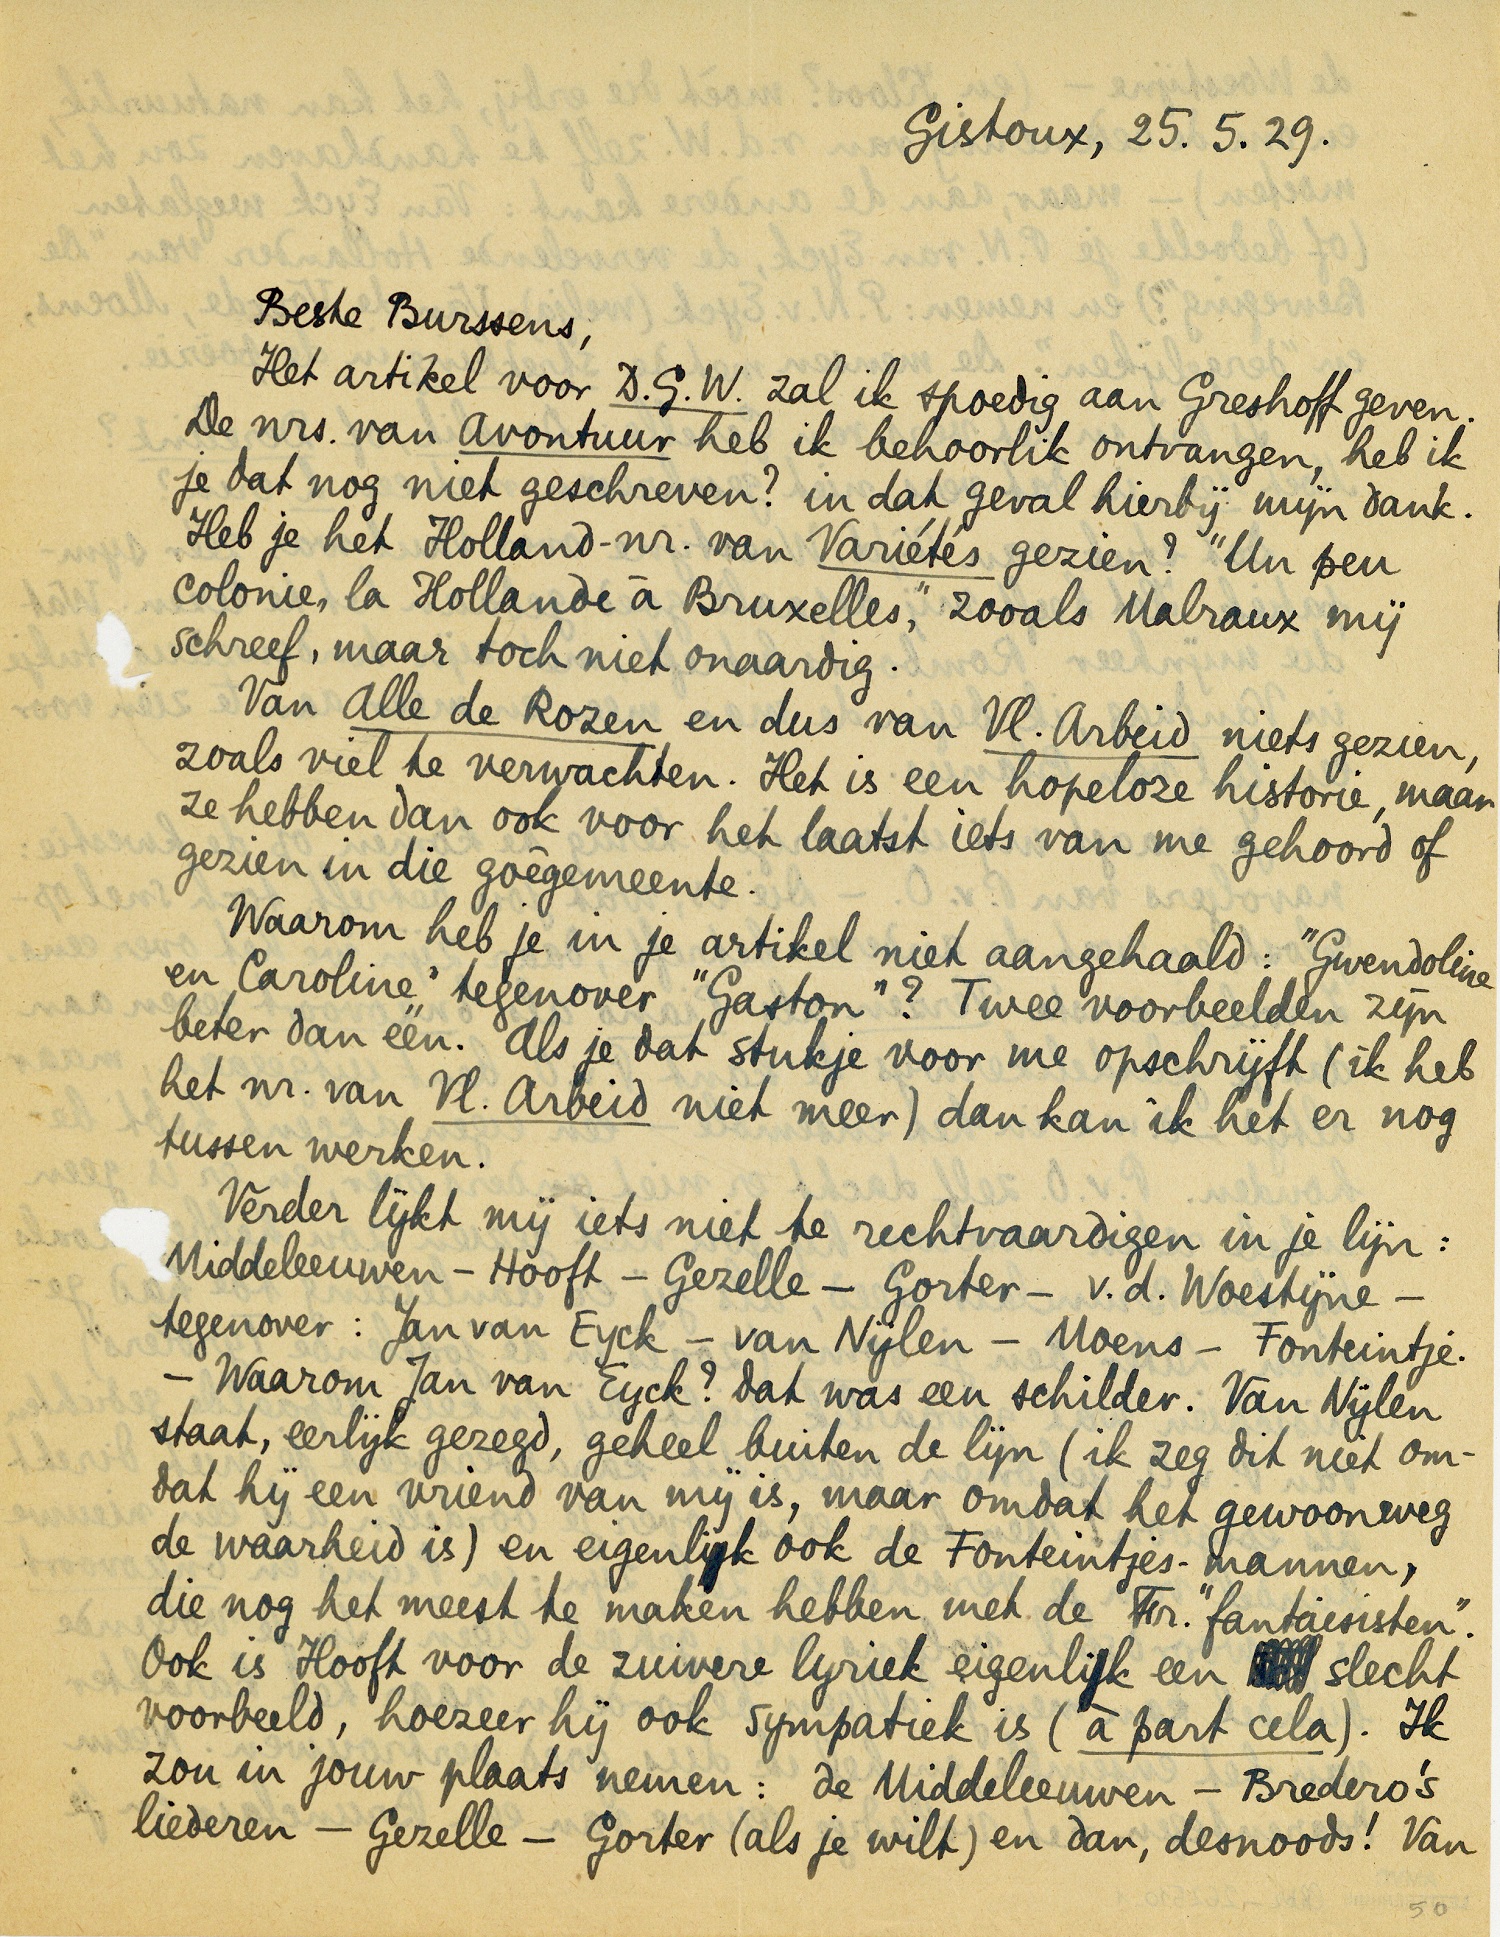 Gistoux, 25. 5. 29.
Beste Burssens,
Het artikel voor D.G.W. zal ik spoedig aan Greshoff geven.
De nrs. van Avontuur heb ik behoorlik ontvangen, heb ik
je dat nog niet geschreven? in dat geval hierbij mijn dank.
Heb je het Holland-nr. van Variétés gezien? "Un peu
colonie, la Hollande à Bruxelles," zooals Malraux mij
schreef, maar toch niet onaardig.
Van Alle de Rozen en dus van Vl. Arbeid niets gezien,
zoals viel te verwachten. Het is een hopeloze historie, maar
ze hebben dan ook voor het laatst iets van me gehoord of
gezien in die goêgemeente.
Waarom heb je in je artikel niet aangehaald: "Gwendoline
en Caroline," tegenover "Gaston"? Twee voorbeelden zijn
beter dan een. Als je dat stukje voor me opschrijft (ik heb
het nr. van Vl. Arbeid niet meer) dan kan ik het er nog
tussen werken.
Verder lijkt mij iets niet te rechtvaardigen in je lijn:
Middeleeuwen - Hooft - Gezelle - Gorter - v.d. Woestijne -
tegenover: Jan van Eyck - van Nijlen - Moens - Fonteintje.
- Waarom Jan van Eyck? dat was een schilder. Van Nijlen
staat, eerlijk gezegd, geheel buiten de lijn (ik zeg dit niet om-
dat hij een vriend van mij is, maar omdat het gewoonweg
de waarheid is) en eigenlijk ook de Fonteintjes-mannen,
die nog het meest te maken hebben met de Fr. "fantaisisten".
Ook is Hooft voor de zuivere lyriek eigenlijk een slecht
voorbeeld, hoezeer hij ook sympatiek is (à part cela). Ik
zou in jouw plaats nemen: de Middeleeuwen - Bredero's
liederen - Gezelle - Gorter (als je wilt) en dan, desnoods! Van
50